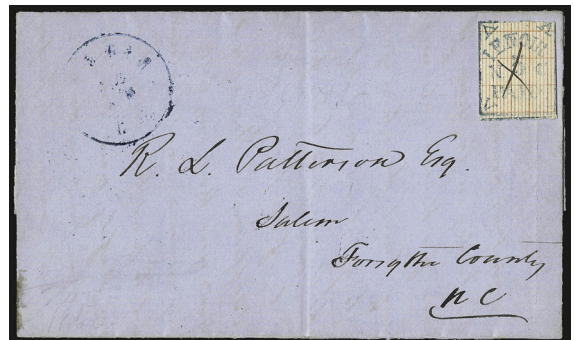 LENOIR
R. L. Patterson Esq.
Salem
Forsythe County
NC